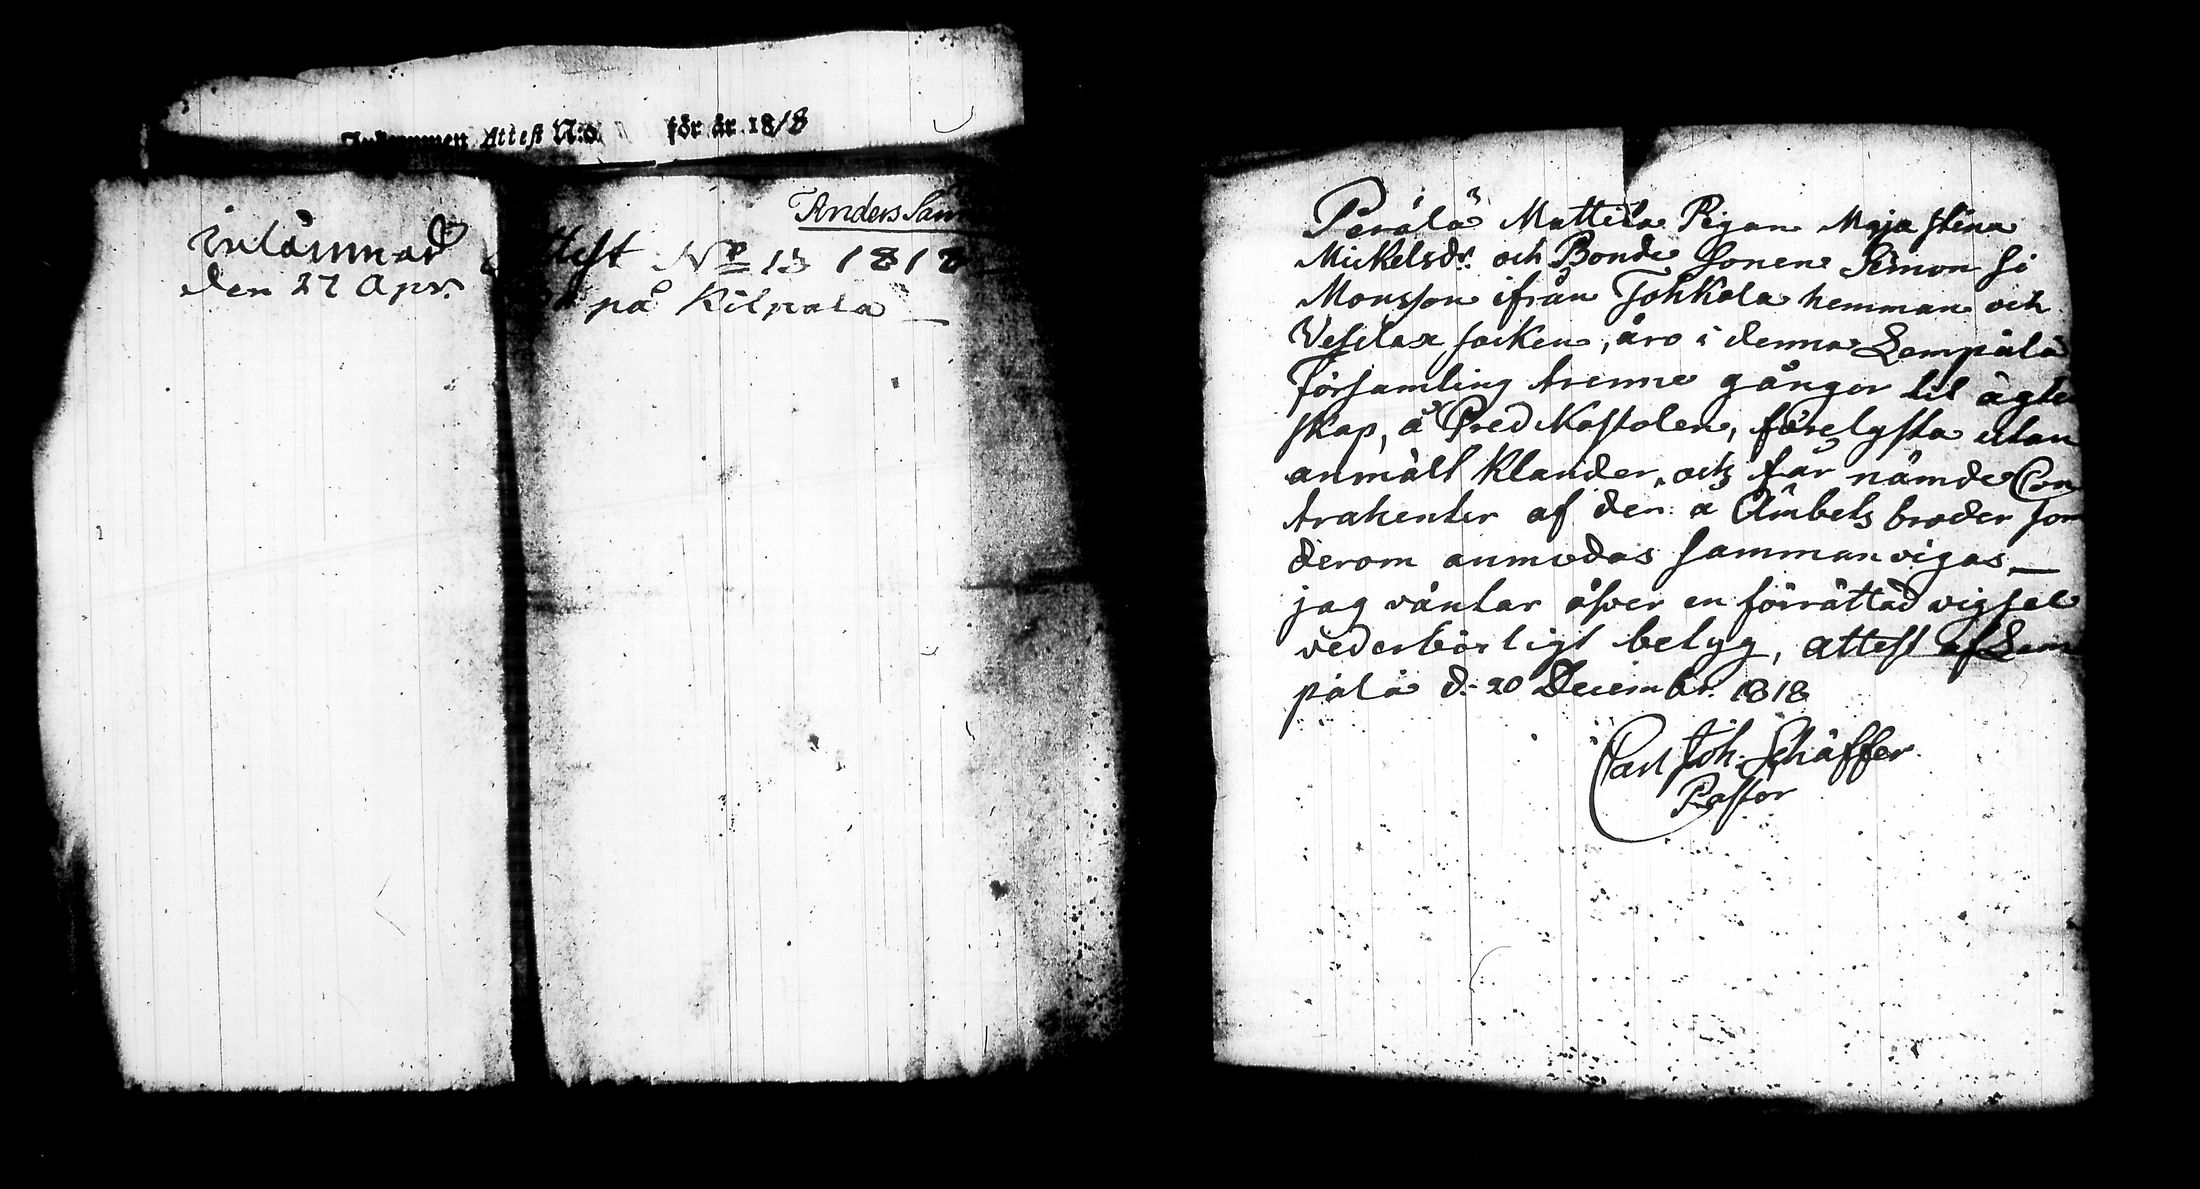 Inkommen Attest N:o för år 1818
inlämnad
den 27 Apr.
Anders Sam
ttest No 13 1818
på Kilpala
Perälä Mattila Pigan Maja Stina
Mickelsdr. och Bonde Sonen Simon Si
Monsson ifrån Tohkala hemman och
Vesilax socken, äro i denna Lempälä
Församling trenne gånger til ägte
skap, å Predikostolen, förelysta utan
anmält klander, och får nämde Con
trahenter af den a Ämbets broder som
derom anmodas sammanvigas._
jag väntar öfver en förrättad vigsel
vederbörligt betyg, attest af Lem
pälä d. 20 Decembr. 1818
Carl Joh. Schäffer
Pastor